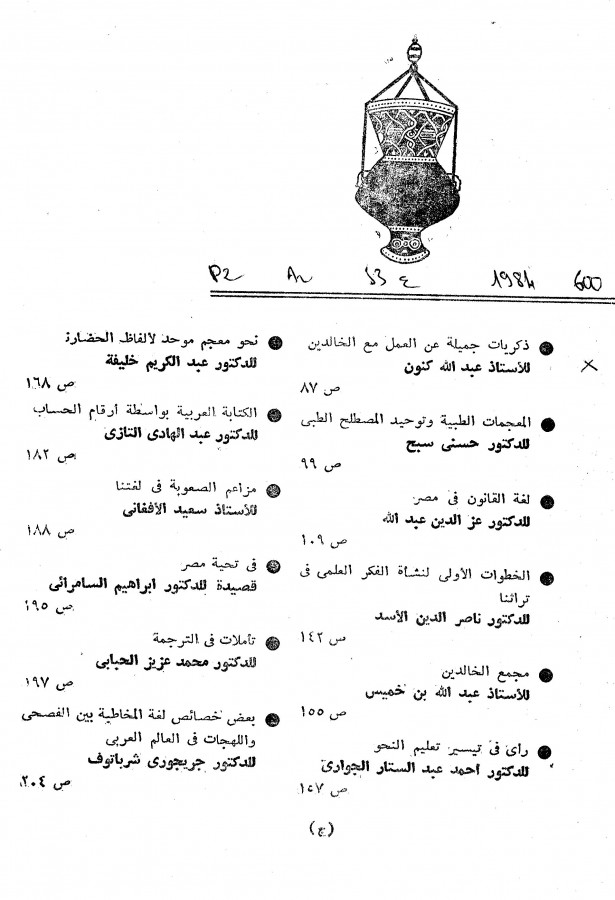 P2 An 53 ع 1984 600
ذكريات جميلة عن العمل مع الخالدين
للأستاذ عبد الله كنون
ص ٨٧
المعجمات الطبية وتوحيد المصطلح الطبى
للدكتور حسنى سبح
ص ٩٩
لغة القانون فى مصر
للدكتور عز الدين عبد الله
ص ١٠٩
الخطوات الأولى لنشأة الفكر العلمى فى
تراثنا
للدكتور ناصر الدين الأسد
ص ١٤٢
مجمع الخالدين
للأستاذ عبد الله بن خميس
ص ١٥٥
رأى فى تيسير تعليم النحو
للدكتور أحمد عبد الستار الجوارى
ص ١٥٧
نحو معجم موحد لألفاظ الحضارة
للدكتور عبد الكريم خليفة
ص ١٦٨
الكتابة العربية بواسطة أرقام الحساب
للدكتور عبد الهادى التازى
ص ١٨٢
مزاعم الصعوبة فى لغتنا
للأستاذ سعيد الأفغانى
ص ١٨٨
فى تحية مصر
قصيدة للدكتور ابراهيم السامرائى
ص ١٩٥
تأملات فى الترجمة
للدكتور محمد عزيز الحبابى
ص ١٩٧
بعض خصائص لغة المخاطبة بين الفصحى
واللهجات فى العالم العربى
للدكتور جريجورى شرباتوف
ص ٢٠٤
(ج)